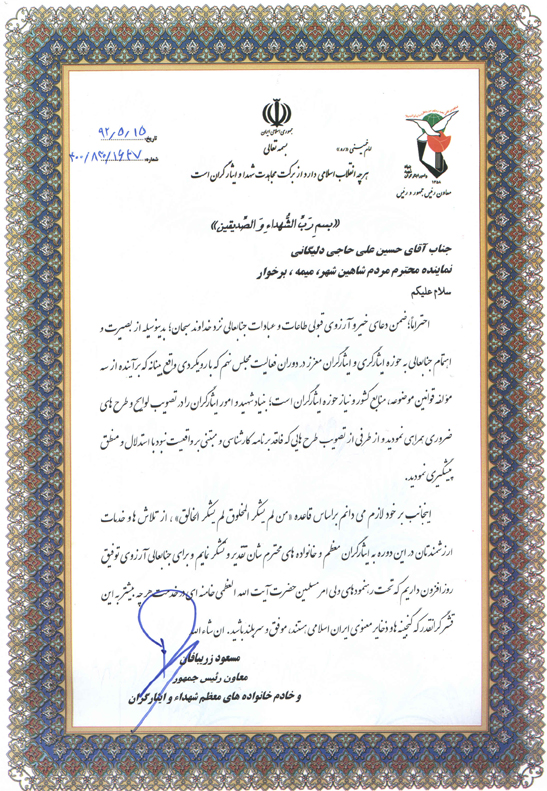 جمهوری اسلامی ایران
بسمه تعالی
تاریخ: ۹۲/۵/۱۵
شماره: ۴۰۰/۸۳۰/۱۶۴۷
هر چه انقلاب اسلامی دارد از برکت مجاهدت شهدا و ایثارگران است
معاون رئیس جمهور و رئیس
«بسم رَبِّ الشُّهداءِ وَ الصِّدیقین»
جناب آقای حسین علی حاجی دلیگانی
نماینده محترم مردم شاهین شهر، میمه ، برخوار
سلام علیکم
احتراماً؛ ضمن دعای خیر و آرزوی قبولی طاعات و عبادات جنابعالی نزد خداوند سبحان؛ بدینوسیله از بصیرت و
اهتمام جنابعالی به حوزه ایثارگری و ایثارگران معزز در دوران فعالیت مجلس نهم که با رویکردی واقع بینانه که برآینده از سه
مؤلفه قوانین موضوعه، منابع کشور و نیاز حوزه ایثارگران است؛ بنیاد شهید و امور ایثارگران را در تصویب لوایح و طرح های
ضروری همراهی نمودید و از طرفی از تصویب طرح هایی که فاقد برنامه کارشناسی و مبتنی بر واقعیت نبود با استدلال و منطق
پیشگیری نمودید.
اینجانب بر خود لازم می دانم براساس قاعده «من لم یشکر المخلوق لم یشکر الخالق» ، از تلاش ها و خدمات
ارزشمندتان در این دوره به ایثارگران معظم و خانواده های محترم شان تقدیر و تشکر نمایم و برای جنابعالی آرزوی توفیق
روزافزون داریم که تحت رهنمودهای ولی امر مسلمین حضرت آیت الله العظمی خامنه ای در خدمت هر چه بیشتر به این
قشر گرانقدر که گنجینه ها و ذخایر معنوی ایران اسلامی هستند، موفق و سربلند باشید. ان شاء الله
مسعود زریبافان
معاون رئیس جمهور
و خادم خانواده های معظم شهداء و ایثارگران